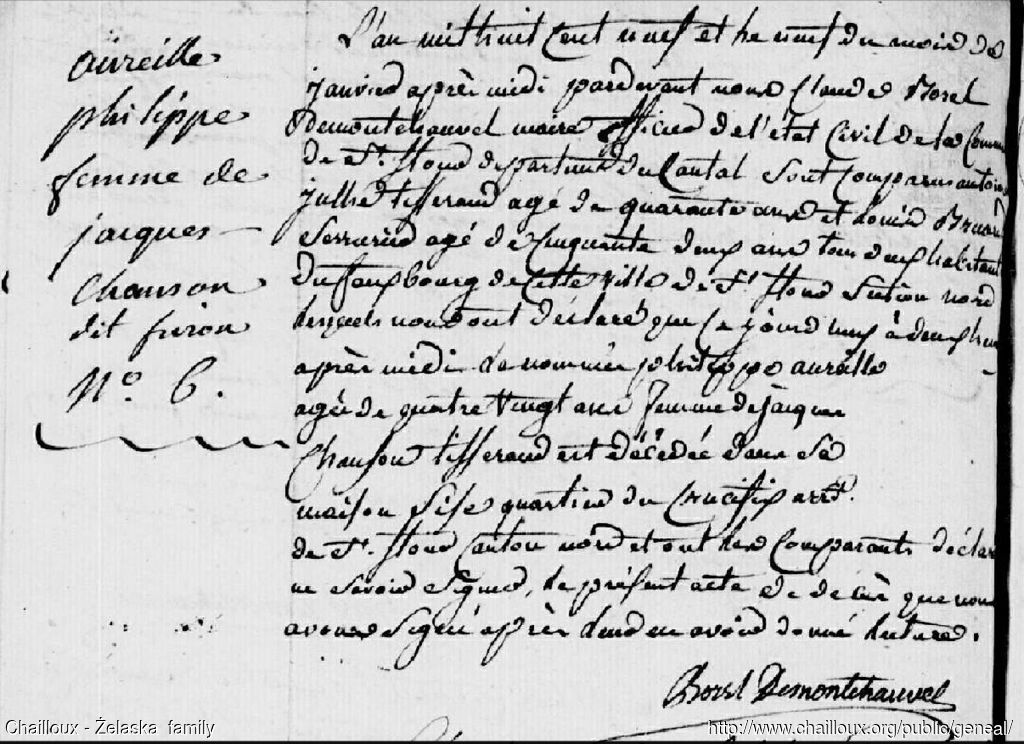 aureille
philippe
femme de
jacques
Chanson
dit furon
N.o 6.
L'an mil huit Cent neuf et le neuf du mois de
janvier après midi pardevant nous Claude Borel
Demontchauvel maire officier de l'état Civil de la Comm
de St. flour departemt. du Cantal sont comparus antoine
jullie tisserand agé de quarante ans et louis Bruan
Serrurier agé de Cinquante deux ans tous deux habitant
du fauxbourg de Cette ville de St. flour section nord
lesquels nous ont déclaré que Ce jourd'hui à deux heu
après midi la nommée philippe aureille
agée de quatre Vingt ans femme de jacques
Chanson tisserand est décédée dans sa
maison sise quartier du Crucifix arrt.
de St. flour Canton nord et ont les Comparants déclar
ne savoir signer, le présent acte de decès que nous
avons signé après leur en avoir donné lecture.
Borel Demontchauvel
Chailloux - Żelaska family
http://www.chailloux.org/public/geneal/